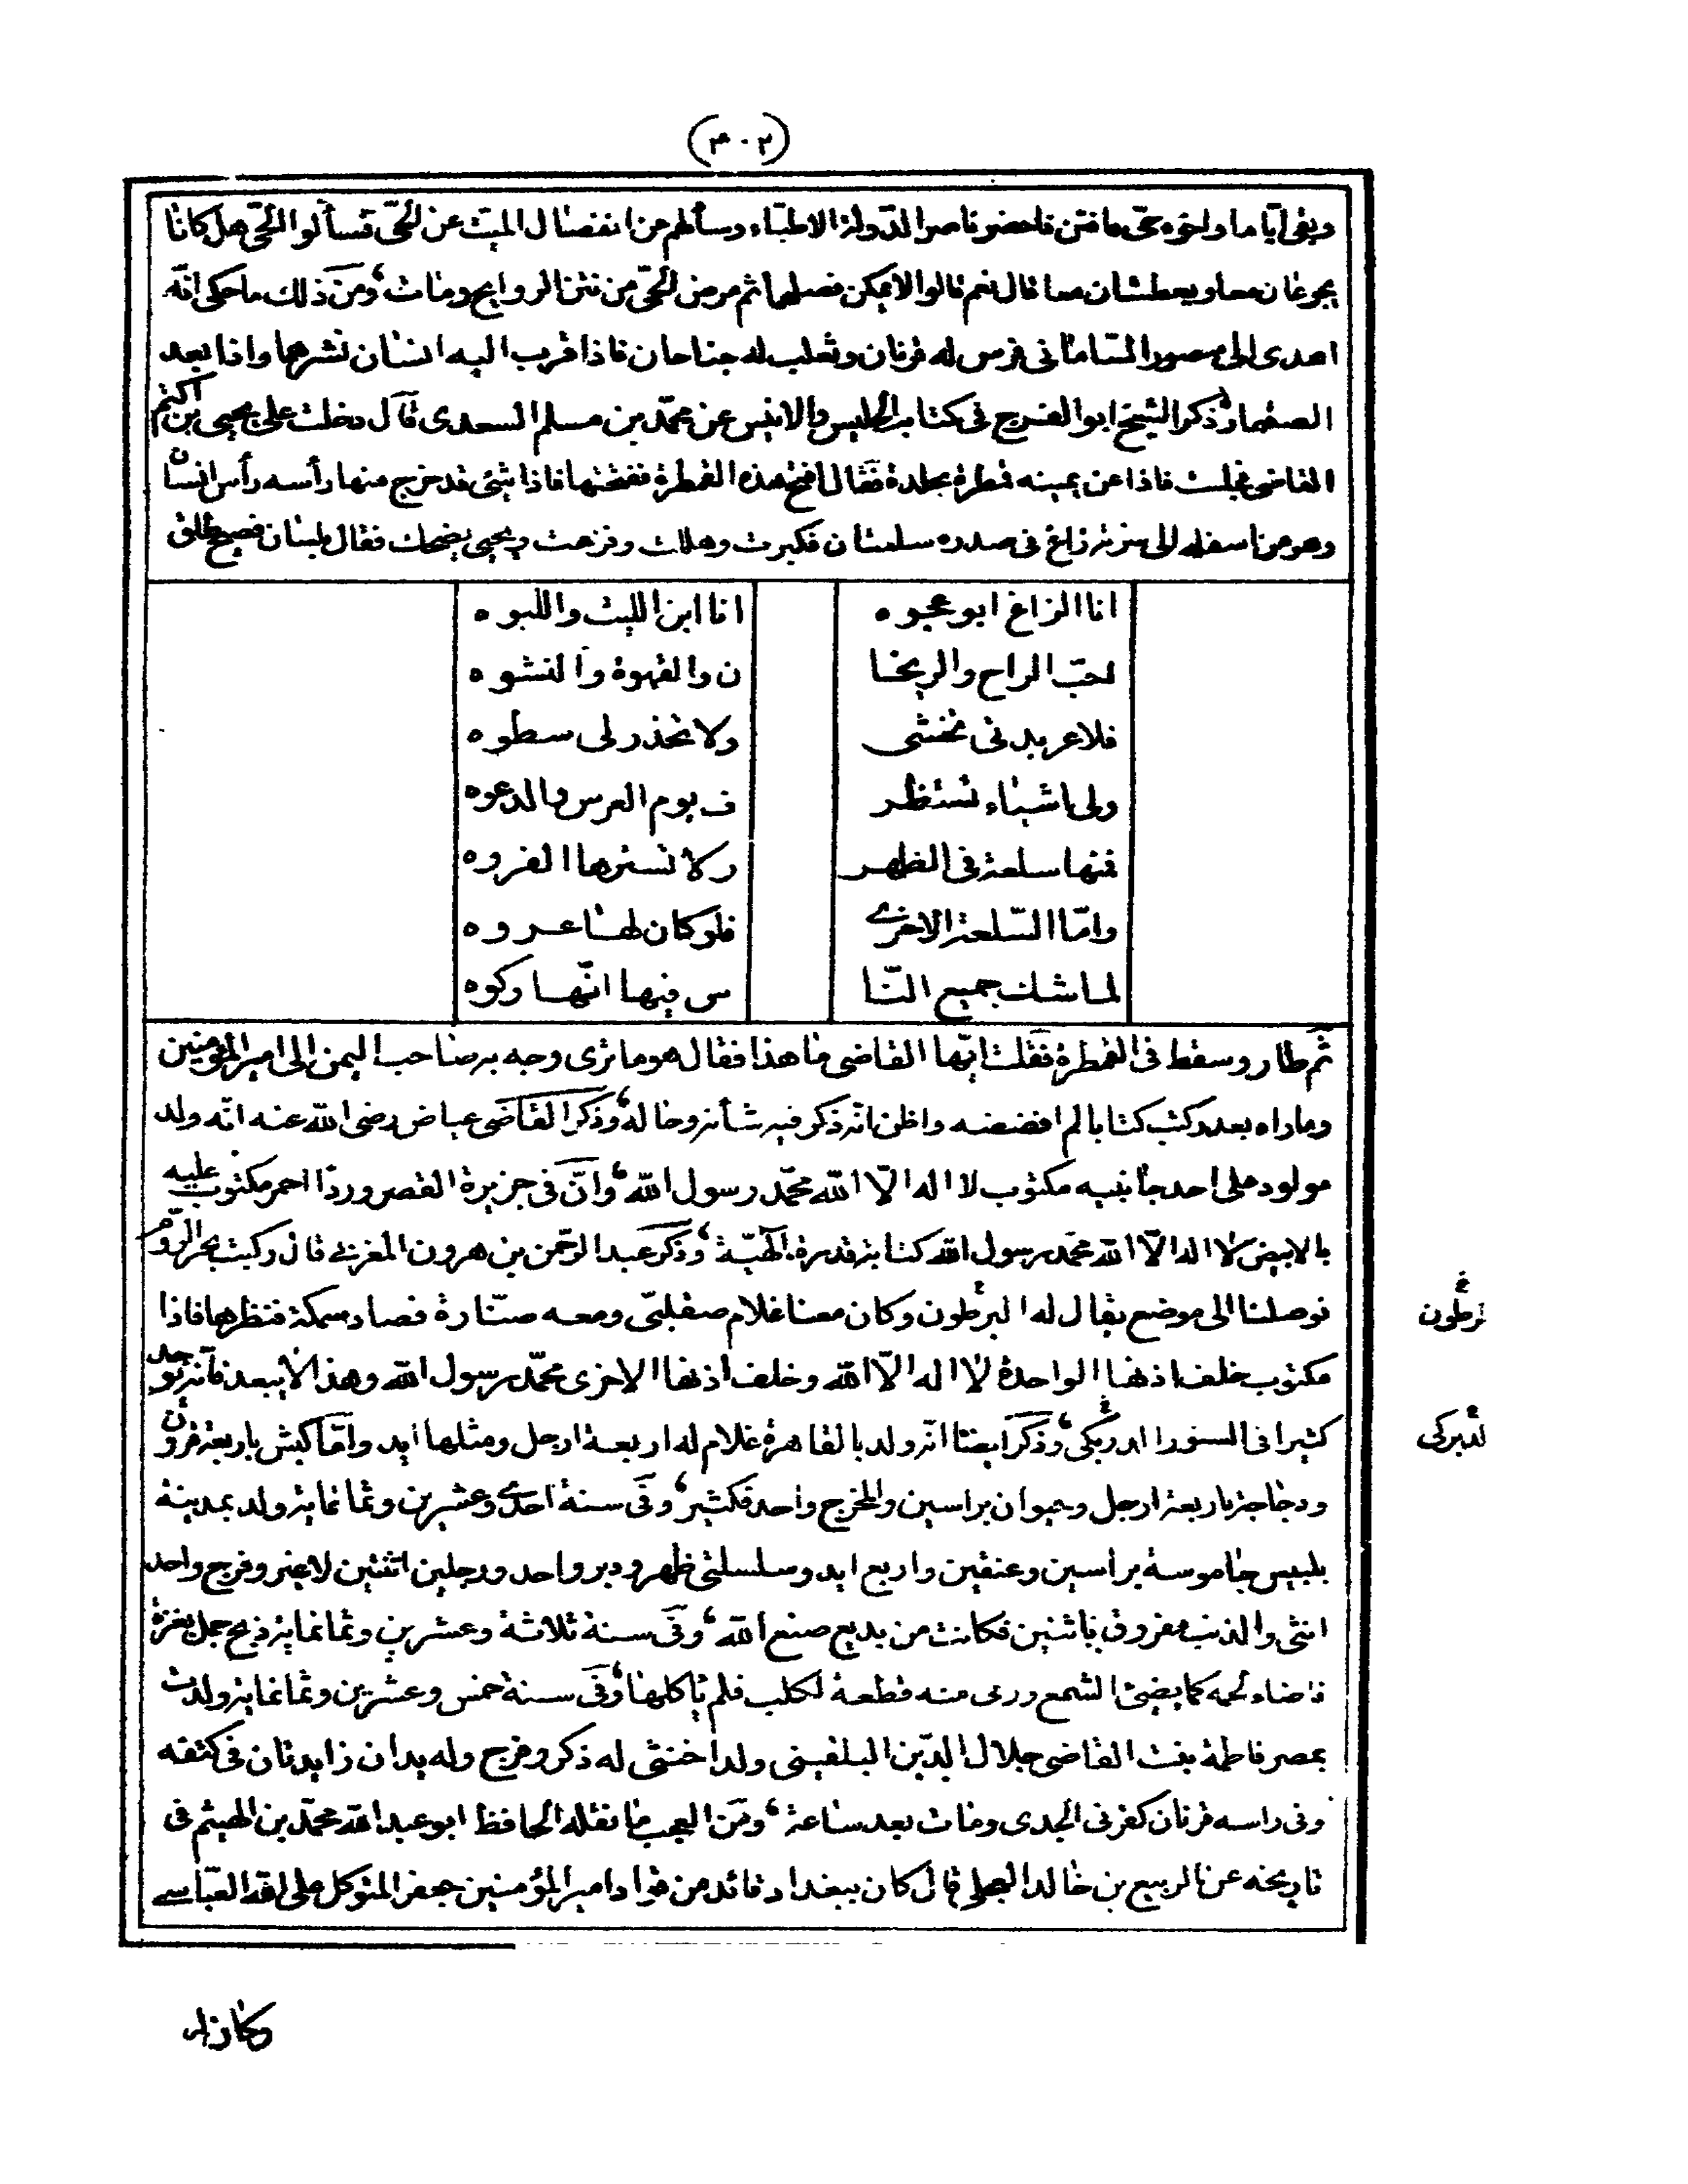 (٣٠٢)
وبقى اياما واخوه حى فانتن فاحضر ناصر الدولة الاطباء وسألهم عن انفصال الميت عن الحى فسألوا الحى هل كانا
يجوعان معا ويعطشان معا قال نعم قالوا لا يمكن فصلهما ثم مرض الحى من نتن الروايح ومات، ومن ذلك ما حكى انه
اهدى الى منصور السامانى فرس له قرنان وثعلب له جناحان فاذا قرب اليه انسان نشرهما واذا بعد
الصقهما، وذكر الشيخ ابو الفرج فى كتاب الجليس والانيس عن محمد بن مسلم السعدى قال دخلت على يحيى بن اكثم
القاضى فجلست فاذا عن يمينه قمطرة مجلدة فقال افتح هذه القمطرة ففتحتها فاذا شئ قد خرج منها رأسه رأس انسان
وهو من اسفله الى سرته زاغ فى صدره سلعتان فكبرت وهللت وفزعت ويحيى يضحك فقال بلسان فصيح طلق
انا الزاغ ابو عجوه انا ابن الليث واللبوه
احب الراح والريحا ن والقهوة والنشوه
فلا عربدتى تخشى ولا تحذر لى سطوه
ولى اشياء تستظر ف يوم العرس والدعوه
فمنها سلعة فى الظهر ولا تسترها الفروه
واما السلعة الاخرى فلو كان لها عروه
لما شك جميع النا س فيها انها ركوه
ثم طار وسقط فى القمطرة فقلت ايها القاضى ما هذا فقال هو ما ترى وجه به صاحب اليمن الى امير المؤمنين
وما راه بعد وكتب كتابا لم افضضه واظن انه ذكر فيه شأنه وحاله، وذكر القاضى عياض رضى الله عنه انه ولد
مولود على احد جانبيه مكتوب لا اله الا الله محمد رسول الله، وان فى جزيرة القصر وردا احمر مكتوب عليه
بالابيض لا اله الا الله محمد رسول الله كتابة قدرة الهية، وذكر عبد الرحمن بن هرون المغربى قال ركبت بحر الروم
فوصلنا الى موضع يقال له البرطون وكان معنا غلام صقلبى ومعه صنارة فصاد سمكة فنظرها فاذا
برطون
مكتوب خلف اذنها الواحدة لا اله الا الله وخلف اذنها الاخرى محمد رسول الله وهذا لا يبعد فانه توجد
كثيرا فى السنور، وذكر ايضا انه ولد بالقاهرة غلام له اربعة ارجل ومثلها ايد واما كبش باربعة قرون
ودجاجة باربعة ارجل وحيوان براسين والمخرج واحد فكثير، وفى سنة احدى وعشرين وثمانماية ولد بمدينة
بلبيس جاموسة براسين وعنقين واربع ايد وسلسلتى ظهر ودبر واحد ورجلين اثنتين لا غير وفرج واحد
انثى والذنب مفروق باثنين فكانت من بديع صنع الله، وفى سنة ثلاثة وعشرين وثمانماية ذبح جمل بغزة
فاضاء لحمه كما يضئ الشمع ورمى منه قطعة لكلب فلم ياكلها، وفى سنة خمس وعشرين وثمانماية ولدت
بمصر فاطمة بنت القاضى جلال الدين البلقينى ولدا خنثى له ذكر وفرج وله يدان زايدتان فى كتفه
وفى راسه قرنان كقرنى الجدى ومات بعد ساعة، ومن العجب ما نقله الحافظ ابو عبد الله محمد بن الهيثم فى
تاريخه عن الربيع بن خالد البجلى قال كان ببغداد قائد من قواد امير المؤمنين جعفر المتوكل على الله العباسى
وكان له